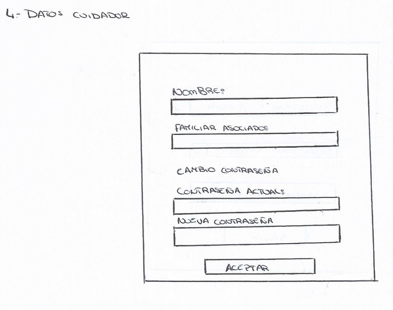 4.- DATOS CUIDADOR
NOMBRE:
FAMILIAR ASOCIADOS
CAMBIO CONTRASEÑA
CONTRASEÑA ACTUAL:
NUEVA CONTRASEÑA
ACEPTAR